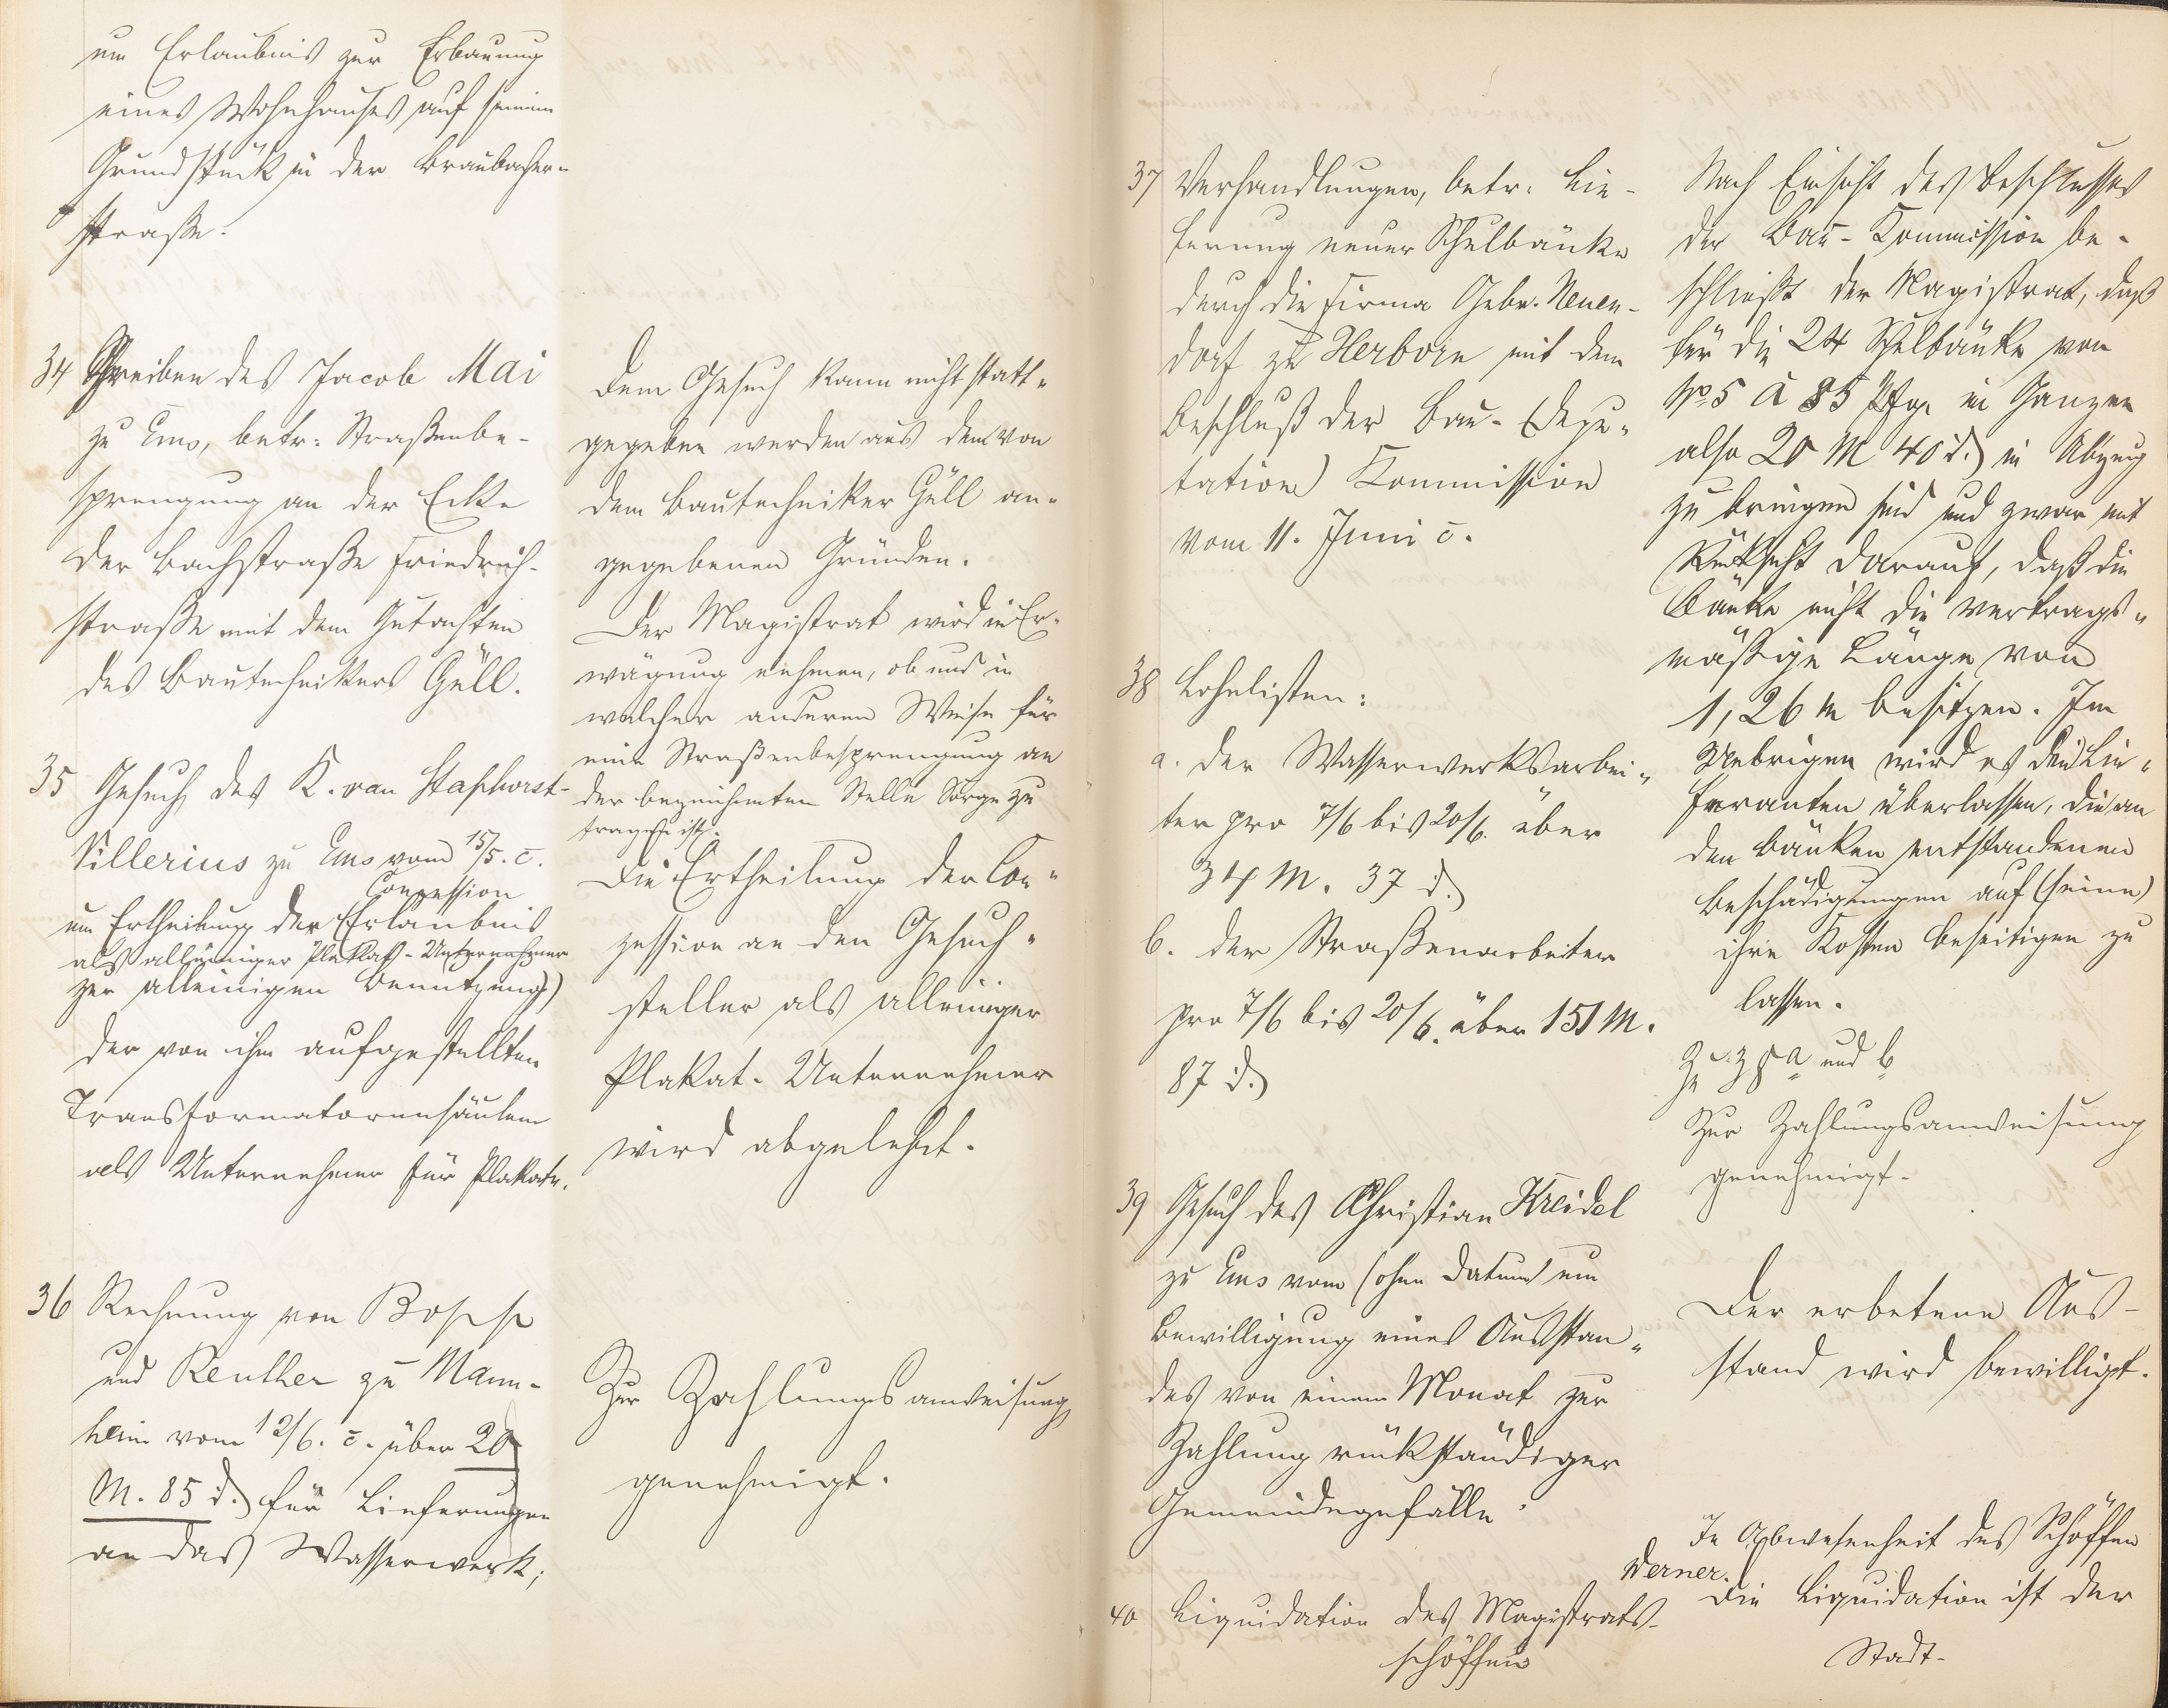 um Erlaubnis zur Erbauung
eines Wohnhauses auf seinem
Grundstück in der Braubacher-
straße.
34 Schreiben des Jacob Mai
zu Ems, betr: Straßenbe-
sprengung an der Ecke
der Bachstraße Friedrich-
straße mit dem Gutachten
des Bautechnikers Güll.
Dem Gesuch kann nicht statt-
gegeben werden aus dem von
dem Bautechniker Güll an-
gegebenen Gründen.
Der Magistrat wird in Er-
wägung nehmen, ob und in
welcher anderen Weise für
eine Straßenbesprengung an
der bezeichneten Stelle Sorge zu
tragen ist.
35 Gesuch des K. van Staphorst-
Villerius zu Ems vom 15/5. c.
Conzession
um Ertheilung der (Erlaubnis
als alleiniger Plakat-Unternehmer
zur alleinigen Benutzung)
der von ihm aufgestellten
Transformatorensäulen
als Unternehmer für Plakate.
Die Ertheilung der Con-
zession an den Gesuch-
steller als alleiniger
Plakat-Unternehmer
wird abgelehnt.
36 Rechnung von Bopp
und Reuther zu Mann-
heim vom 12/6. c. über 20
M. 85 d. für Lieferungen
an das Wasserwerk;
Zur Zahlungsanweisung
genehmigt.
37 Verhandlungen, betr: Lie-
ferung neuer Schulbänke
durch die Firma Gebr. Neuen-
dorf zu Herborn mit dem
Beschluß der Bau-(Depu-
tation) Kommission
vom 11. Juni c.
Nach Einsicht des Beschlusses
der Bau-Kommission be-
schließt der Magistrat, daß
für die 24 Schulbänke von
No 5 à 85 Pfg. im Ganzen
also 20 M 40 d. in Abzug
zu bringen sind und zwar mit
Rücksicht darauf, daß die
Bänke nicht die vertrags-
mäßige Länge von
1,26 m besitzen. Im
Uebrigen wird es den Lie-
feranten überlassen, die an
den Bänken entstandenen
Beschädigungen auf (seine)
ihre Kosten beseitigen zu
lassen.
38 Lohnlisten:
a. der Wasserwerksarbei-
ter pro 7/6 bis 20/6. über
34 M. 37 d.
b. der Straßenarbeiter
pro 7/6 bis 20/6. über 151 M.
87 d.
Zu 38 a und b
Zur Zahlungsanweisung
genehmigt.
39 Gesuch des Christian Kreidel
zu Ems vom (ohne Datum) um
Bewilligung eines Ausstan-
des von einem Monat zur
Zahlung rückständiger
Gemeindegefälle
Der erbetene Aus-
stand wird bewilligt.
40 Liquidation des Magistrats-
schöffen
In Abwesenheit des Schöffen
Werner.
Die Liquidation ist der
Stadt-